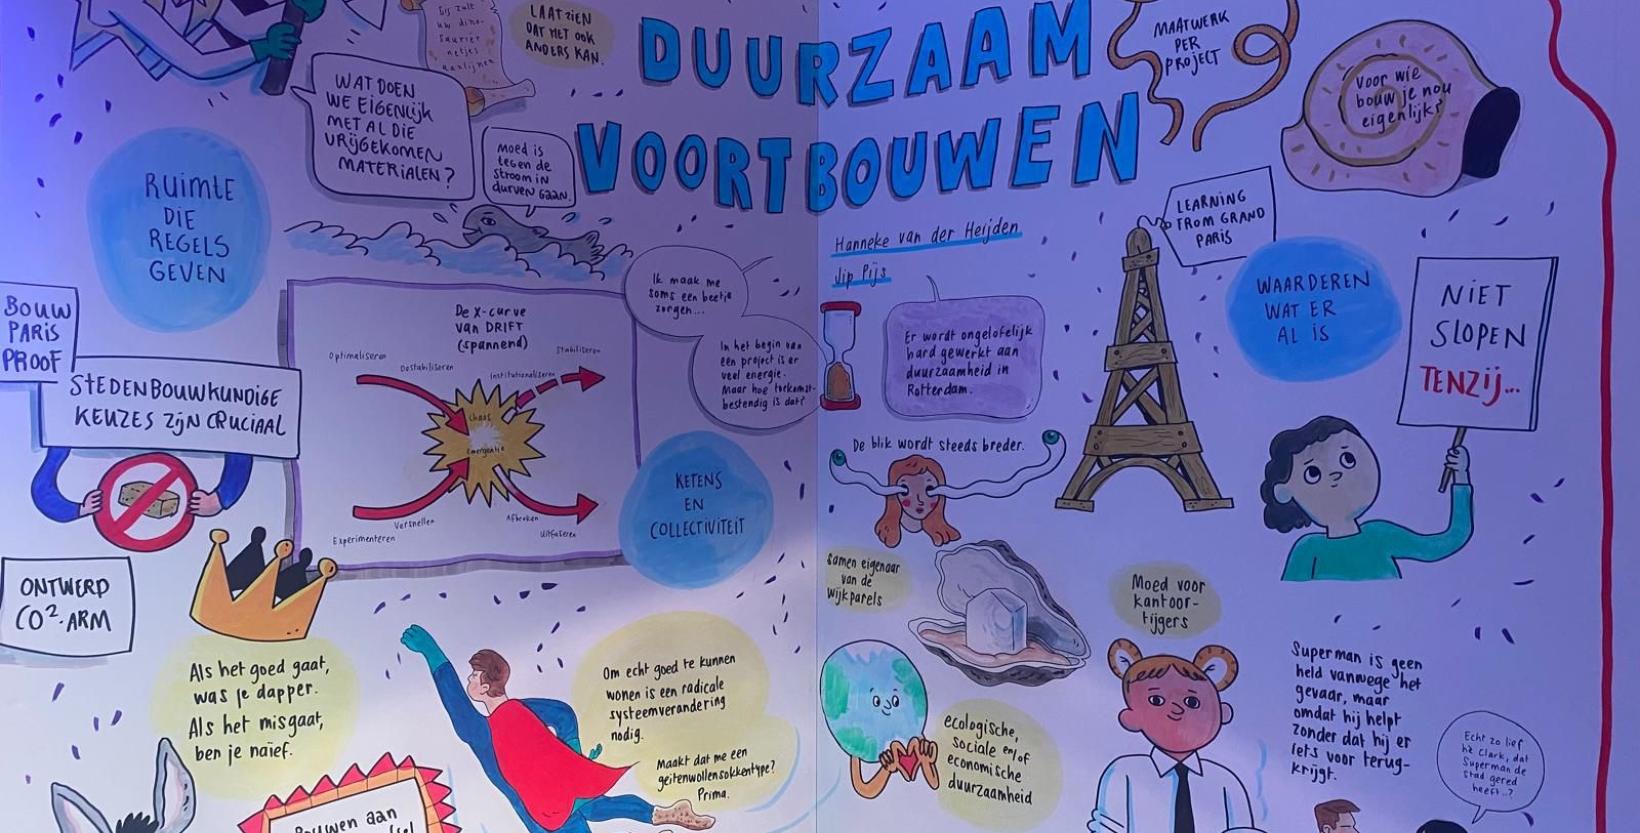 Gij zult
uw dino-
saurier
netjes
aanlijnen
LAAT ZIEN
DAT HET OOK
ANDERS KAN.
DUURZAAM
VOORTBOUWEN
MAATWERK
PER
PROJECT
Voor wie
bouw je nou
eigenlijk?
WAT DOEN
WE EIGENLIJK
MET AL DIE
VRIJGEKOMEN
MATERIALEN?
Moed is
tegen de
stroom in
durven gaan.
RUIMTE
DIE
REGELS
GEVEN
Hanneke van der Heijden
Jip Pijs
LEARNING
FROM GRAND
PARIS
WAARDEREN
WAT ER
AL IS
NIET
SLOPEN
TENZIJ...
BOUW
PARIS
PROOF
STEDENBOUWKUNDIGE
KEUZES ZIJN CRUCIAAL
De X-curve
van DRIFT
(spannend)
Optimaliseren
Destabiliseren
Institutionaliseren
Stabiliseren
Chaos
Emergentie
Experimenteren
Versnellen
Afbreken
Uitfaseren
Ik maak me
soms een beetje
zorgen...
In het begin van
een project is er
veel energie.
Maar hoe toekomst-
bestendig is dat?
Er wordt ongelofelijk
hard gewerkt aan
duurzaamheid in
Rotterdam.
De blik wordt steeds breder.
KETENS
EN
COLLECTIVITEIT
ONTWERP
CO²-ARM
Samen eigenaar
van de
wijkparels
Moed voor
kantoor-
tijgers
Als het goed gaat,
was je dapper.
Als het misgaat,
ben je naïef.
Om echt goed te kunnen
wonen is een radicale
systeemverandering
nodig.
Maakt dat me een
geitenwollensokkentype?
Prima.
ecologische,
sociale en/of
economische
duurzaamheid
Superman is geen
held vanwege het
gevaar, maar
omdat hij helpt
zonder dat hij er
iets voor terug-
krijgt.
Echt zo lief
hè Clark, dat
Superman de
stad gered
heeft..?
Bouwen aan